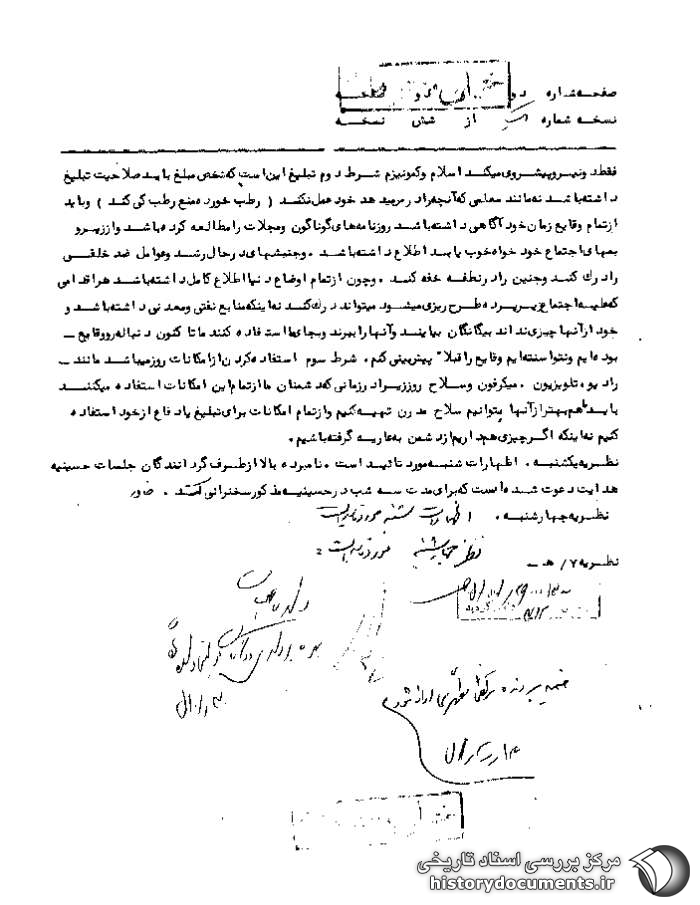 صفحه شماره دو از دو صفحه
نسخه شماره از شش نسخه
فقط دو نیرو پیشروی میکند اسلام و کمونیزم شرط دوم تبلیغ این است که شخص مبلغ باید صلاحیت تبلیغ
داشته باشد نه مانند معلمی که آنچه را درس میدهد خود عمل نکند ( رطب خورده منع رطب کی کند ) و باید
از تمام وقایع زمان خود آگاهی داشته باشد روزنامه های گوناگون و مجلات را مطالعه کرده باشد و از زیر و
بمهای اجتماع خود خواه خوب یا بد اطلاع داشته باشد . و جنبشهای در حال رشد و عوامل ضد خلقی
را درك کند و جنین را در نطفه خفه کند . و چون از تمام اوضاع دنیا اطلاع کامل داشته باشد هر اقدامی
که علیه اجتماع بریزد و طرح ریزی میشود میتواند درك کند نه اینکه منابع نفتی و معدنی داشته باشد و
خود از آنها چیزی نداند بیگانگان بیایند و آنها را ببرند و بجای ما استفاده کنند ما تا کنون دنباله رو وقایع –
بوده ایم و نتوانسته ایم وقایع را قبلاً پیش بینی کنم . شرط سوم استفاده کردن از امکانات روز میباشد مانند –
رادیو ، تلویزیون . میکرفون و سلاح روز زیرا در زمانی که دشمنان ما از تمام این امکانات استفاده میکنند
باید ما هم بهتر از آنها بتوانیم سلاح مدرن تهیه کنیم و از تمام امکانات برای تبلیغ یا دفاع از خود استفاده
کنیم نه اینکه اگر چیزی هم داریم از دشمن به عاریه گرفته باشیم .
نظریه یکشنبه . اظهارات شنبه مورد تائید است . نامبرده بالا از طرف گردانندگان جلسات حسینیه
هدایت دعوت شده است که برای مدت سه شب در حسینیه مذکور سخنرانی کند . خاور
نظریه چهارشنبه . اظهارات شنبه مورد تایید است
نظر چهارشنبه مورد تایید است .
نظریه ۷ / هـ –
ضمیمه پرونده مرتضی مطهری ارائه شود
مرکز بررسی اسناد تاریخی
historydocuments.ir